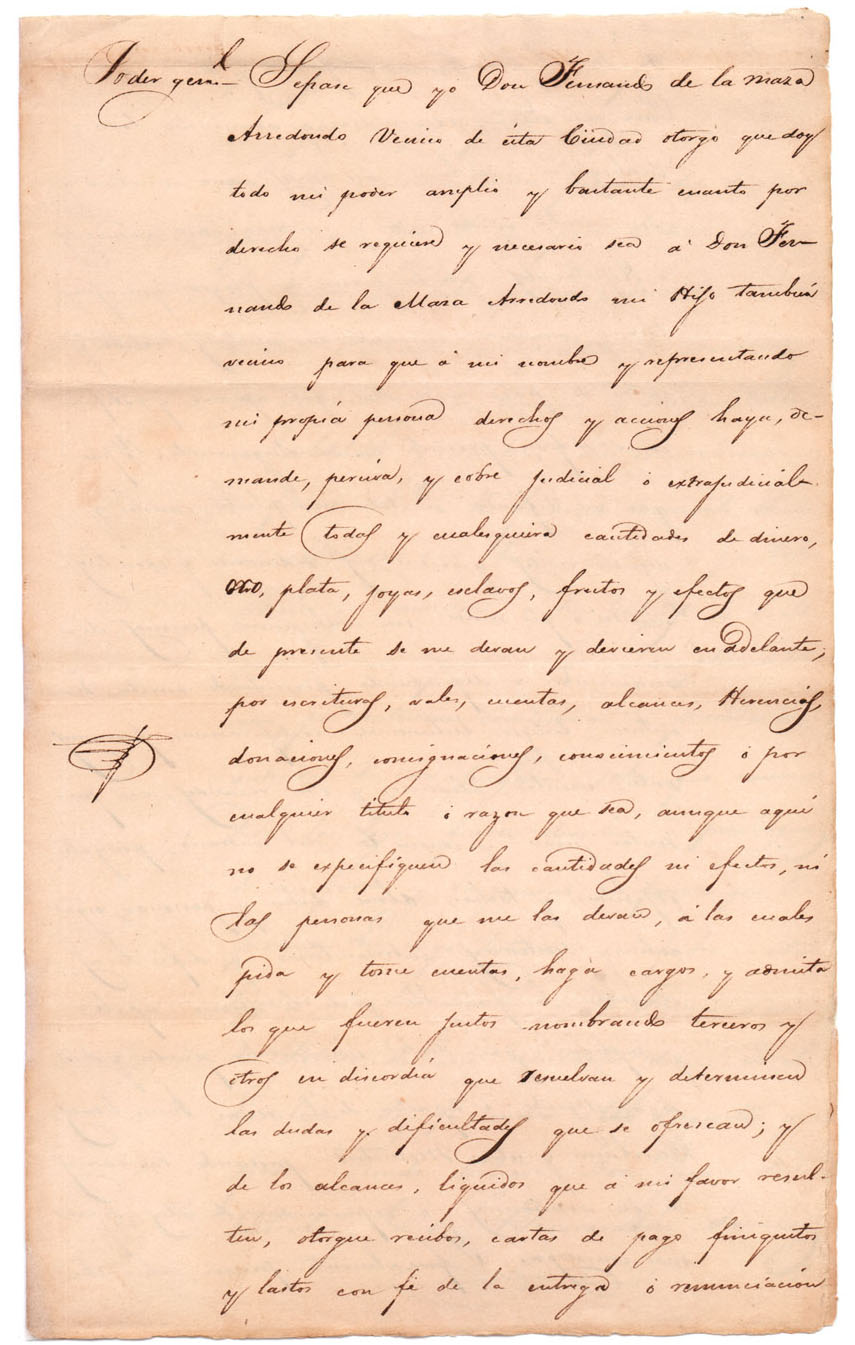 Poder genl. Sepase que yo Don Fernando de la maza
Arredondo Vecino de ésta Ciudad otorgo que doy
todo mi poder amplio y bastante cuanto por
derecho se requiere y necesario sea á Don Fer-
nando de la Maza Arredondo mi Hijo también
vecino para que á mi nombre y representando
mi propiá persona derechos y acciones haya, de-
mande, perciva, y cobre judicial ó extrajudicial-
mente todas y cualesquiera cantidades de dinero,
oro, plata, joyas, esclavos, frutos y efectos que
de presente se me devan y devieren en adelante;
por escrituras, vales, cuentas, alcances, Herencias,
donaciones, consignaciones, conocimientos ó por
cualquier titulo ó razon que sea, aunque aquí
no se expecifiquen las cantidades ni efectos, ni
las personas que me las devan, á las cuales
pida y tome cuentas, haga cargos, y admita
los que fueren justos nombrando terceros y
otros en discordiá que resuelvan y determinen
las dudas y dificultades que se ofrescan; y
de los alcances, liquidos que á mi favor resul-
ten, otorgue recibos, cartas de pago finiquitos
y lastos con fé de la entrega ó renunciación